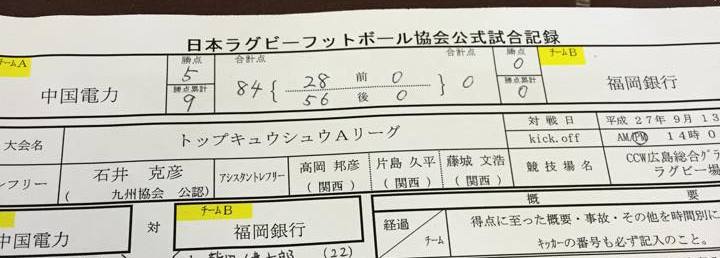 日本ラグビーフットボール協会公式試合記録
チームA 勝点 合計点 合計点 勝点 チームB
中国電力 5 84 { 28 前 0 } 0 0 福岡銀行
勝点累計 9 56 後 0 勝点累計 0
大会名 トップキュウシュウAリーグ 対戦日 平成 27年 9月 13
kick.off AM/PM 14時0
レフリー 石井 克彦 アシスタントレフリー 高岡 邦彦 片島 久平 藤城 文浩 競技場名 CCW広島総合グラ
( 九州協会 公認) (関西) (関西) (関西) ラグビー場
チームB 概 要
中国電力 対 福岡銀行 経過 チーム 得点に至った概要・事故・その他を時間別に
キッカーの番号も必ず記入のこと。
(22)